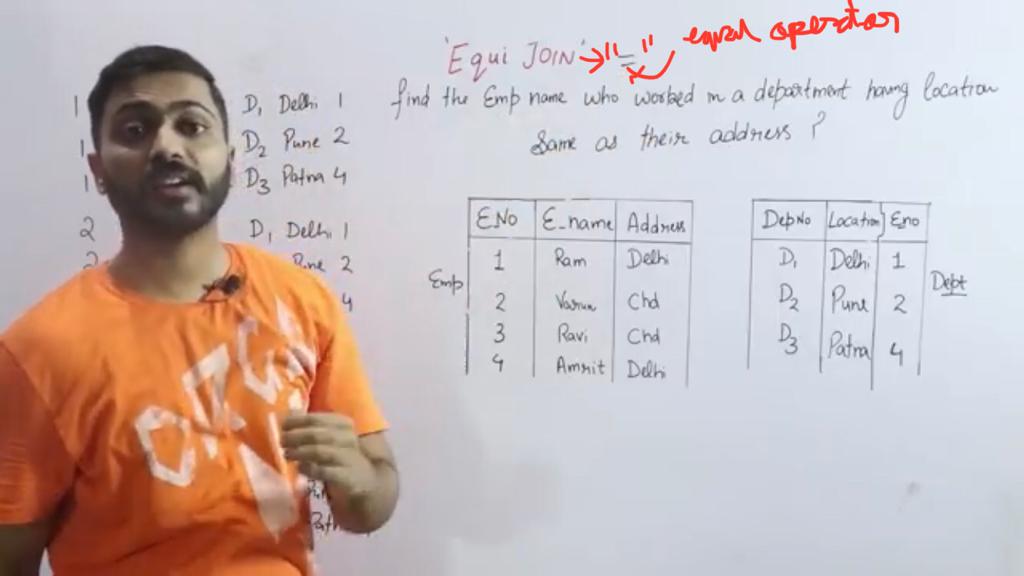 'Equi JOIN' → "=" equal operator
find the Emp name who worked in a department having location
Same as their address?
1 D1 Delhi 1
1 D2 Pune 2
1 D3 Patna 4
2 D1 Delhi 1
2 Pune 2
4
Emp
E.NO E_name Address
1 Ram Delhi
2 Varun Chd
3 Ravi Chd
4 Amrit Delhi
Dept
DepNo Location Eno
D1 Delhi 1
D2 Pune 2
D3 Patna 4